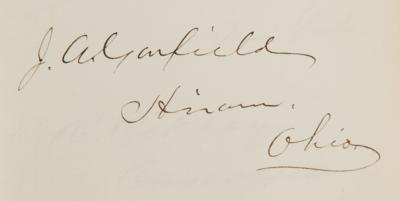 J. A. Garfield
Hiram.
Ohio